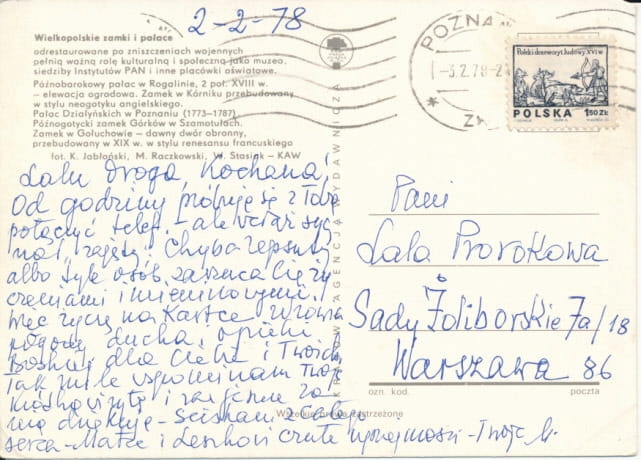 2-2-78
Wielkopolskie zamki i pałace
odrestaurowane po zniszczeniach wojennych
pełnią ważną rolę kulturalną i społeczną jako muzea,
siedziby Instytutów PAN i inne placówki oświatowe.
Późnobarokowy pałac w Rogalinie, 2 poł. XVIII w.
– elewacja ogrodowa. Zamek w Kórniku przebudowany
w stylu neogotyku angielskiego.
Pałac Działyńskich w Poznaniu (1773–1787)
Późnogotycki zamek Górków w Szamotułach.
Zamek w Gołuchowie – dawny dwór obronny,
przebudowany w XIX w. w stylu renesansu francuskiego
fot. K. Jabłoński, M. Raczkowski, W. Stasiak – KAW
Lalu Droga, Kochana!
Od godziny próbuję się z Tobą
połączyć telef. – ale wciąż syg
nał zajęty. Chyba zepsuty
albo tyle osób zarzuca Cię ży
czeniami imieninowymi.
Więc życzę na kartce zdrowia
pogody ducha, opieki
Boskiej dla Ciebie i Twoich
Tak mile wspominam Twoją
i
dziękuję – Ściskam z całego
serca – Matce i Leszkowi czułe – Twoja M.
KRAJOWA AGENCJA WYDAWNICZA
Wszelkie prawa zastrzeżone
POZNA
-3.2.78-2
Polski drzeworyt ludowy XVI w.
POLSKA 1,50 ZŁ
Pani
Lala Prorokowa
Sady Żoliborskie 7a/18
Warszawa 86
ozn. kod. poczta